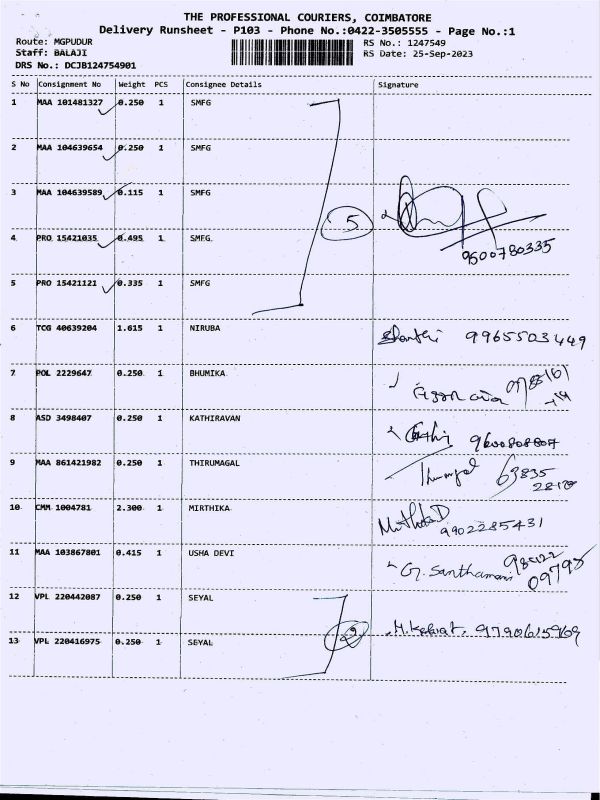 THE PROFESSIONAL COURIERS, COIMBATORE
Delivery Runsheet - P103 - Phone No.:0422-3505555 - Page No.:1
Route: MGPUDUR RS No.: 1247549
Staff: BALAJI RS Date: 25-Sep-2023
DRS No.: DCJB124754901
S No Consignment No Weight PCS Consignee Details Signature
1 MAA 101481327 0.250 1 SMFG
2 MAA 104639654 0.250 1 SMFG
3 MAA 104639589 0.115 1 SMFG
5
4 PRO 15421035 0.495 1 SMFG
9500780335
5 PRO 15421121 0.335 1 SMFG
6 TCG 40639204 1.615 1 NIRUBA Shanthi 9965503449
7 POL 2229647 0.250 1 BHUMIKA
8 ASD 3498407 0.250 1 KATHIRAVAN 9600808807
9 MAA 861421982 0.250 1 THIRUMAGAL 63835
10 CMM 1004781 2.300 1 MIRTHIKA Mirthika D
9902285431
11 MAA 103867801 0.415 1 USHA DEVI G. Santhamani 98422
09795
12 VPL 220442087 0.250 1 SEYAL
2 9790615969
13 VPL 220416975 0.250 1 SEYAL